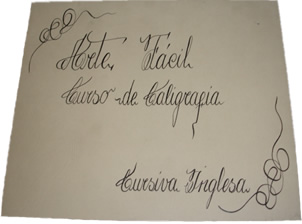 Arte Fácil
Curso de Caligrafia
Cursiva Inglesa